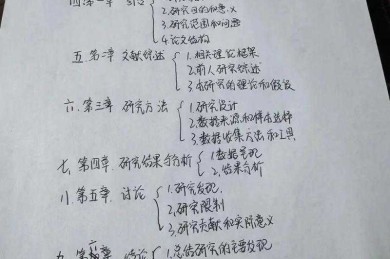 2.研究目的和意义
3.研究范围和问题
4.论文结构
五.第二章 文献综述
1.相关理论框架
2.前人研究综述
3.本研究的理论和假设
六.第三章 研究方法
1.研究设计
2.数据来源和样本选择
3.数据收集方法和工具
七.第四章.研究结果与分析
1.数据呈现
2.结果分析
八.第五章.讨论
1.研究发现.
2.研究限制
3.研究贡献和实际意义
九.第六章 结论
1.总结研究的主要发现